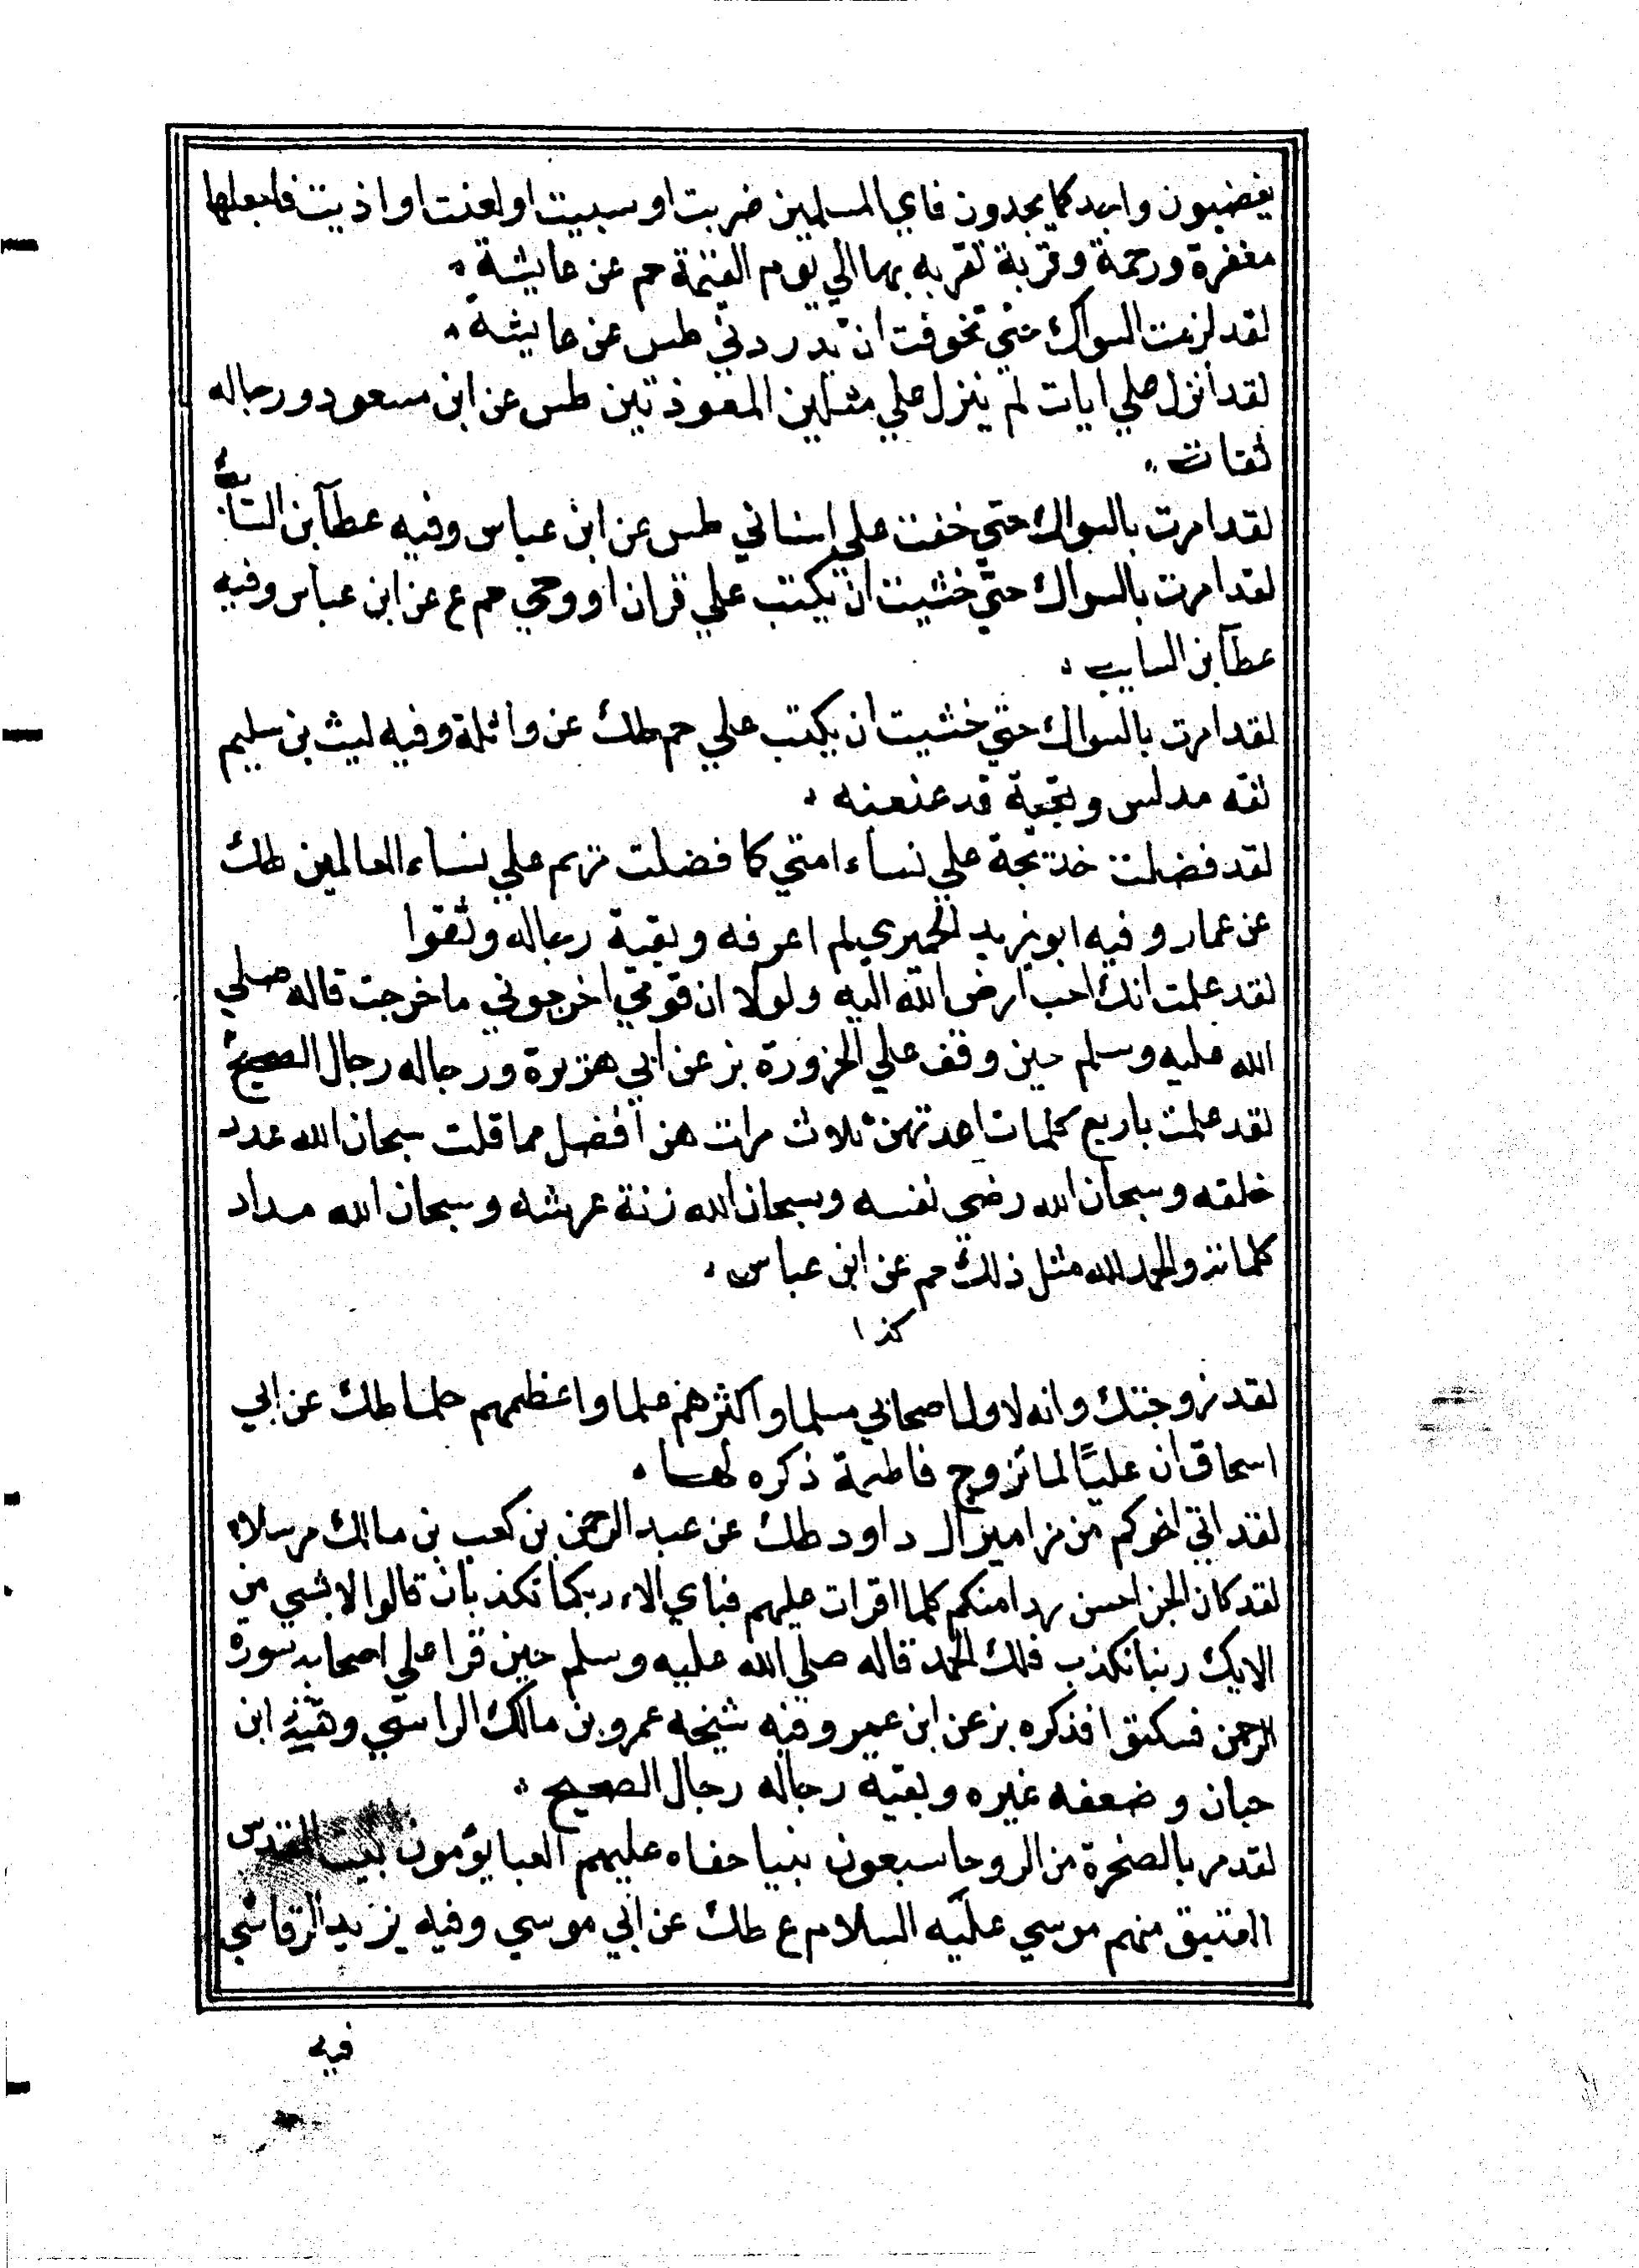 يغضبون واجد كما يجدون فاي المسلمين ضربت او سببت او لعنت او اذيت فاجعلها
مغفرة ورحمة وقربة تقربه بها الي يوم القيمة حم عن عايشة
لقد لزمت السواك حتي تخوفت ان يدردني طس عن عايشة
لقد انزل علي ايات لم ينزل علي مثلهن المعوذتين طس عن ابن مسعود ورجاله
ثقات
لقد امرت بالسواك حتي خفت علي اسناني طس عن ابن عباس وفيه عطآ بن السائب
لقد امرت بالسواك حتي خشيت ان يكتب علي قران او وحي حم ع عن ابن عباس وفيه
عطآ بن السايب
لقد امرت بالسواك حتي خشيت ان يكتب علي حم طك عن واثلة وفيه ليث بن سليم
ثقه مدلس وبقية قد عنعنه
لقد فضلت خديجة علي نساء امتي كما فضلت مريم علي نساء العالمين طك
عن عمار وفيه ابو يزيد الحميري لم اعرفه وبقية رجاله وثقوا
لقد علمت انك احب ارض الله اليه ولولا ان قومي اخرجوني ما خرجت قاله صلي
الله عليه وسلم حين وقف علي الحزورة بز عن ابي هريرة ورجاله رجال الصحيح
لقد علمت باربع كلمات اعدتهن ثلاث مرات هن افضل مما قلت سبحان الله عدد
خلقه وسبحان الله رضي نفسه وسبحان الله زنة عرشه وسبحان الله مداد
كلماته والحمد لله مثل ذلك حم عن ابن عباس
كذا
لقد زوجتك وانه لاول اصحابي سلما واكثرهم علما واعظمهم حلما طك عن ابي
اسحاق ان عليًا لما تزوج فاطمة ذكره لها
لقد اتي اخوكم من مزامير ال داود طك عن عبد الرحمن بن كعب بن مالك مرسلا
لقد كان الجن احسن ردا منكم كلما اقرات عليهم فباي الاء ربكما تكذبان قالوا لا بشي من
الايك ربنا نكذب فلك الحمد قاله صلي الله عليه وسلم حين قرا علي اصحابه سورة
الرحمن فسكتوا فذكره بز عن ابن عمر وفيه شيخه عمرو بن مالك الراسبي وثقه ابن
حبان وضعفه غيره وبقية رجاله رجال الصحيح
لقد مر بالصخرة من الروحا سبعون نبيا حفاه عليهم العبا يؤمون بيت المقدس
العتيق منهم موسي عليه السلام ع طك عن ابي موسي وفيه يزيد الرقاشي
فيه